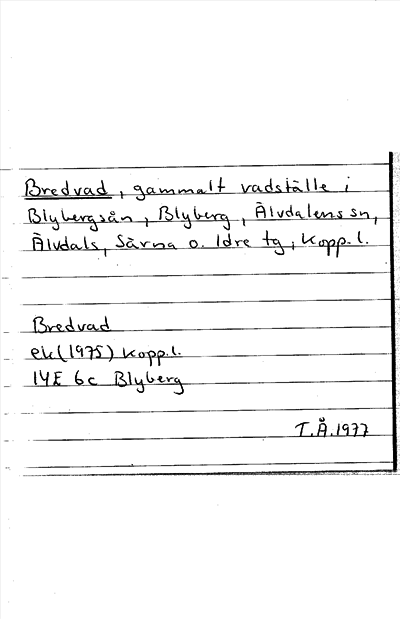 Bredvad, gammalt vadställe i
Blybergsån, Blyberg, Älvdalens sn,
Älvdals, Särna o. Idre tg, Kopp. l.
Bredvad
ek (1975) Kopp. l.
14E 6c Blyberg
T.Å. 1977